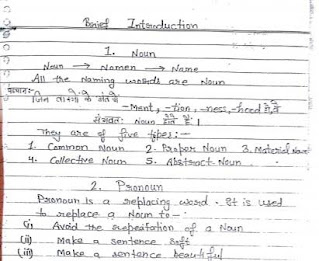 Brief Introduction
1. Noun
Noun → Nomen → Name
All the Naming words are Noun
पहचान:-
जिन शब्दों के अंत में
-Ment, -tion, -ness, -hood हो, वे
संभवतः Noun होते हैं।
They are of five types:-
1. Common Noun 2. Proper Noun 3. Material Noun
4. Collective Noun 5. Abstract Noun
2. Pronoun
Pronoun is a replacing word. It is used
to replace a Noun to-
(i) Avoid the repeatation of a Noun
(ii) Make a sentence soft
(iii) Make a sentence beautiful